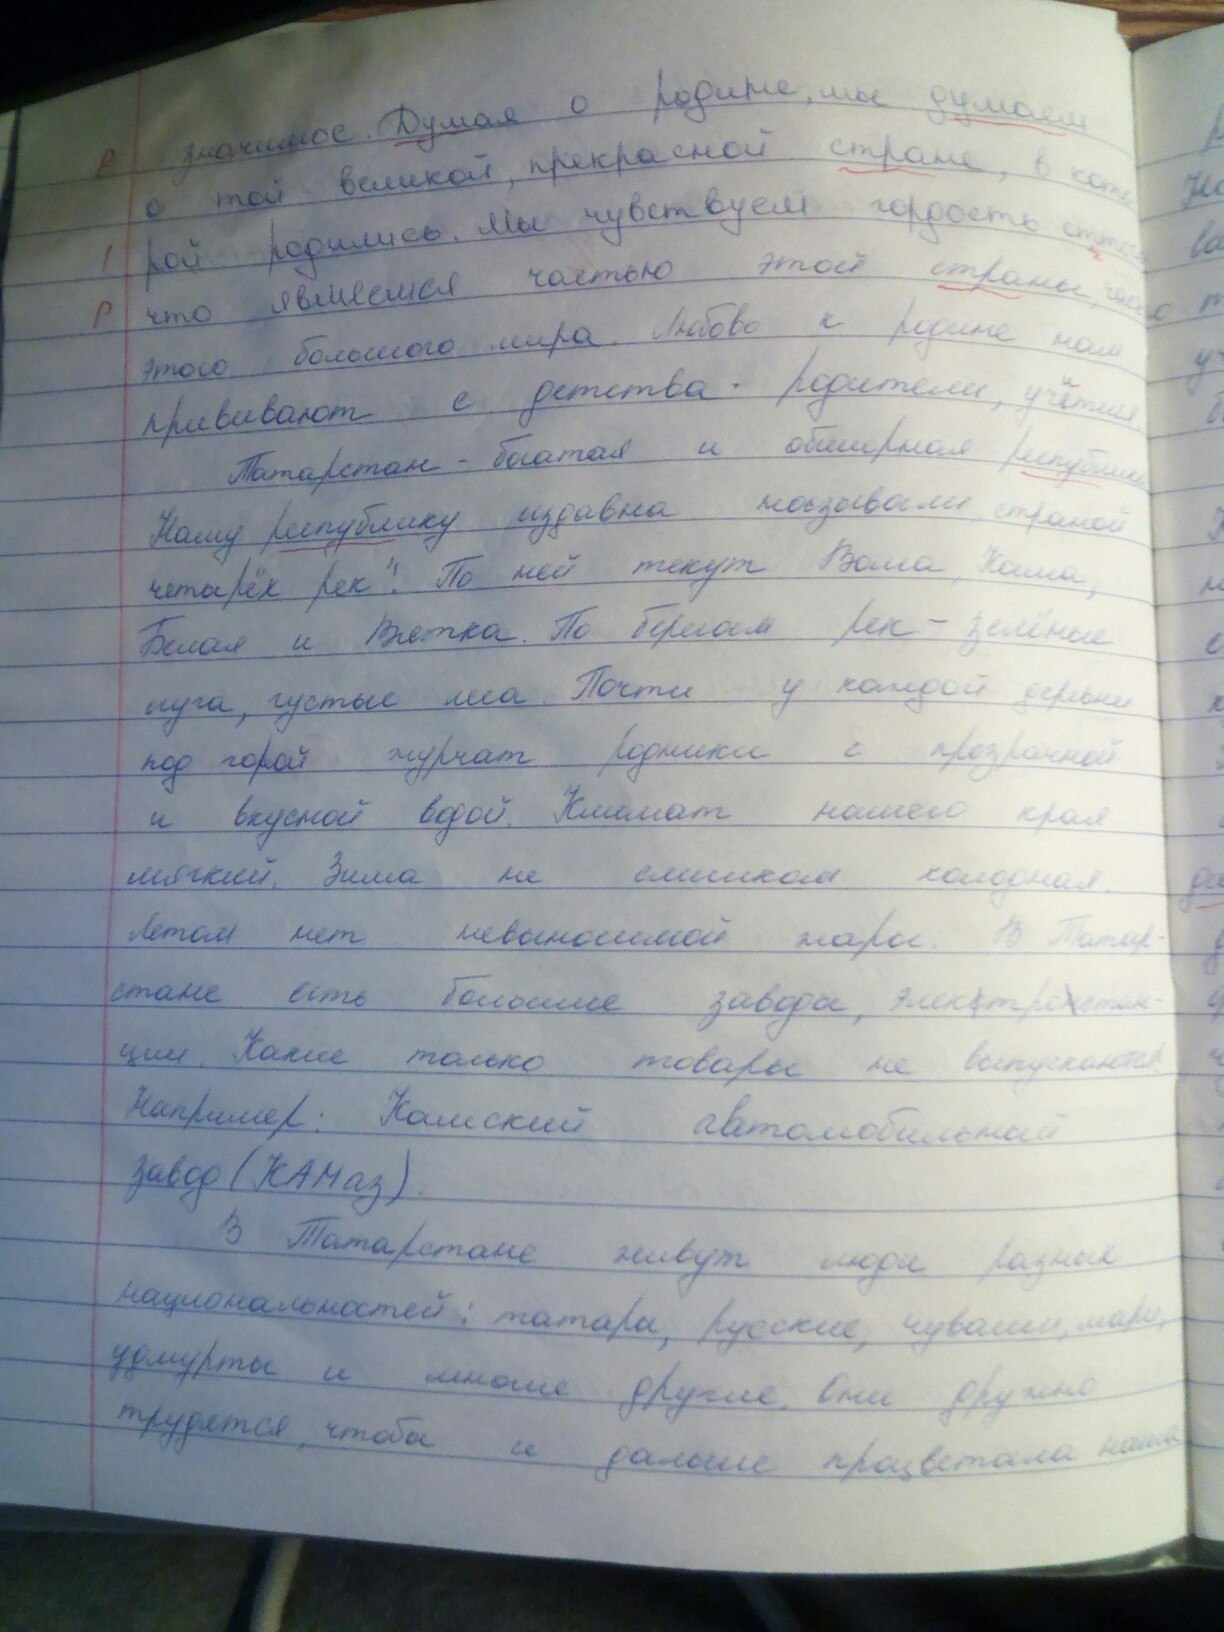 значимое. Думая о родине, мы думаем
о той великой, прекрасной стране, в кото
рой родились. Мы чувствуем гордость оттого
что являемся частью этой страны, часть
этого большого мира. Любовь к родине нам
прививают с детства - родители, учителя.
Татарстан - богатая и обширная республика
Нашу республику издавна называли „страной
четырёк рек". По ней текут Волга, Кама,
Белая и Вятка. По берегам рек - зелёные
луга, густые леса. Почти у каждой деревни
под горой журчат родники с прозрачной
и вкусной водой. Климат нашего края
мягкий. Зима не слишком холодная.
Летом нет невыносимой жары. В Татар-
стане есть большие заводы, электростан-
ции. Какие только товары не выпускаются
Например: Камский автомобильный
завод (КАМаз).
В Татарстане живут люди разных
национальностей: татары, русские, чуваши, мари,
удмурты и многие другие. Они дружно
трудятся, чтобы и дальше процветала наша